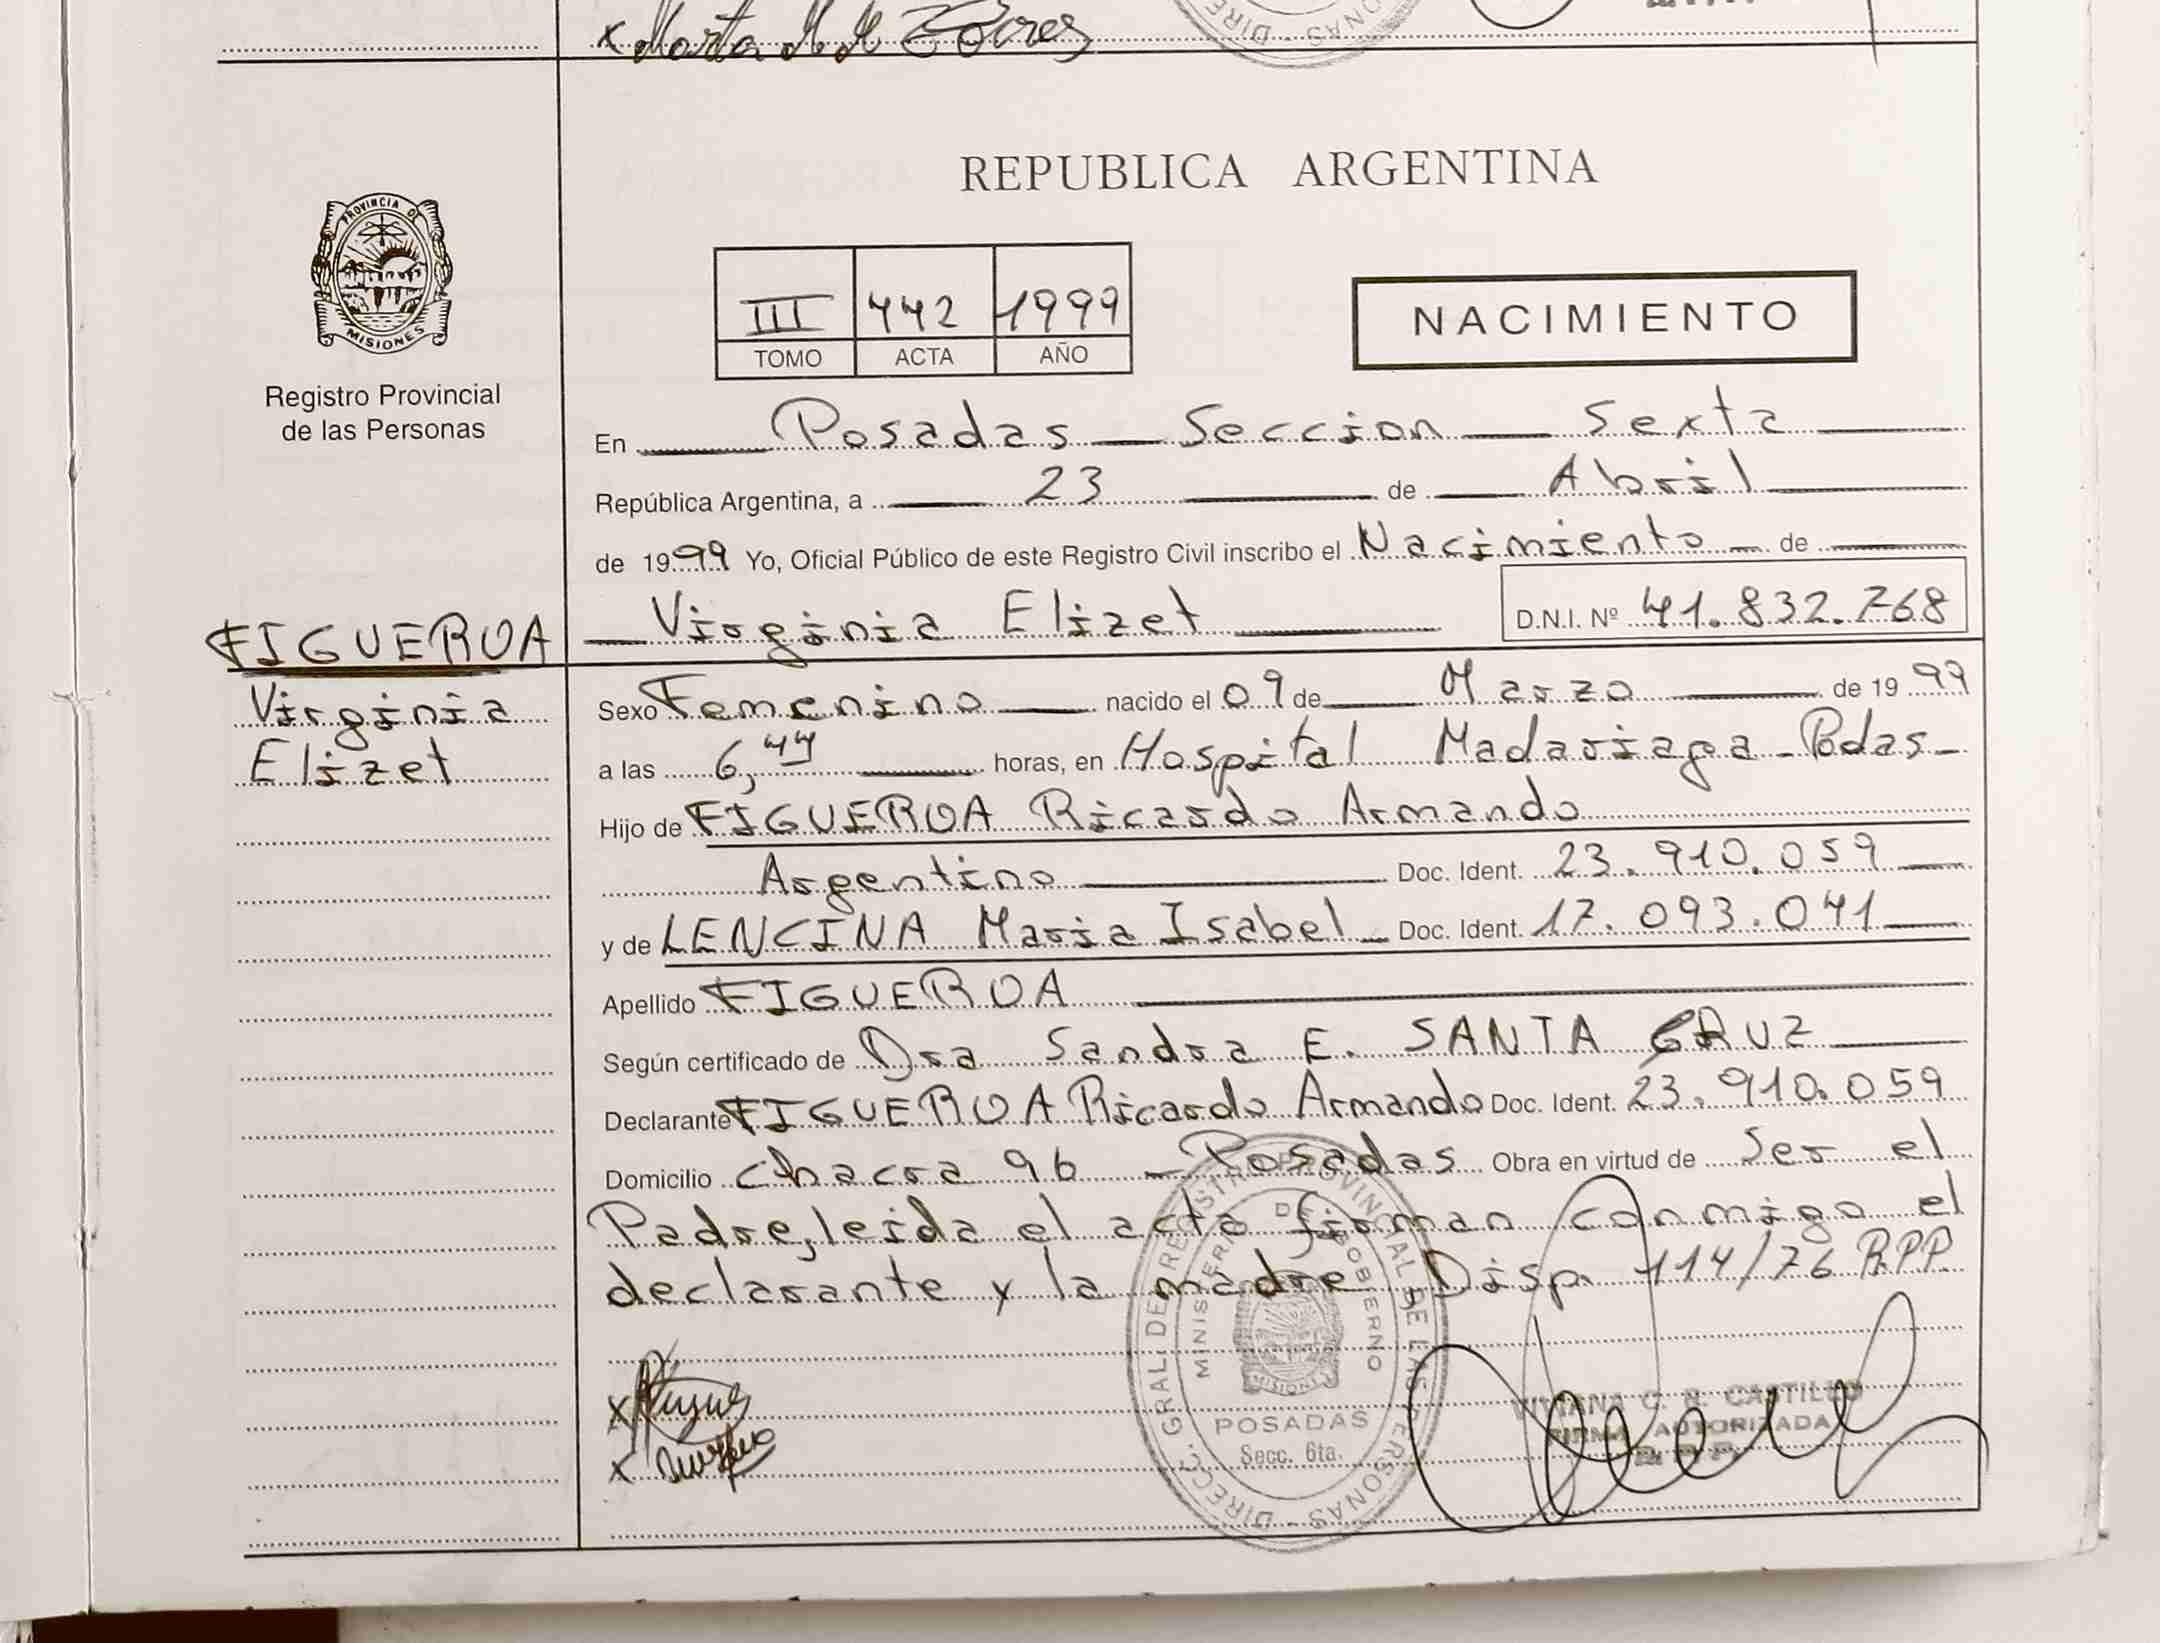 x Marta M. M Torres
REPUBLICA ARGENTINA
PROVINCIA DE
MISIONES
Registro Provincial
de las Personas
III 442 1999
TOMO ACTA AÑO
NACIMIENTO
En Posadas Seccion Sexta
República Argentina, a 23 de Abril
de 1999 Yo, Oficial Público de este Registro Civil inscribo el Nacimiento de
FIGUEROA Virginia Elizet D.N.I. Nº 41.832.768
Virginia
Elizet
Sexo Femenino nacido el 09 de Marzo de 1999
a las 6,44 horas, en Hospital Madariaga - Pdas -
Hijo de FIGUEROA Ricardo Armando
Argentino Doc. Ident. 23.910.059
y de LENCINA Maria Isabel Doc. Ident. 17.093.041
Apellido FIGUEROA
Según certificado de Dra Sandra E. SANTA CRUZ
Declarante FIGUEROA Ricardo Armando Doc. Ident. 23.910.059
Domicilio chacra 96 - Posadas Obra en virtud de Ser el
Padre, leida el acta firman conmigo el
declarante y la madre Disp. 114/76 R.P.P.
DIRECC. GRAL. DE REGISTRO PROVINCIAL DE LAS PERSONAS
MINISTERIO DE GOBERNO
MISIONES
POSADAS
Secc. 6ta.
VIVIANA C. R. CASTILLO
FIRMA AUTORIZADA
R. P. P.